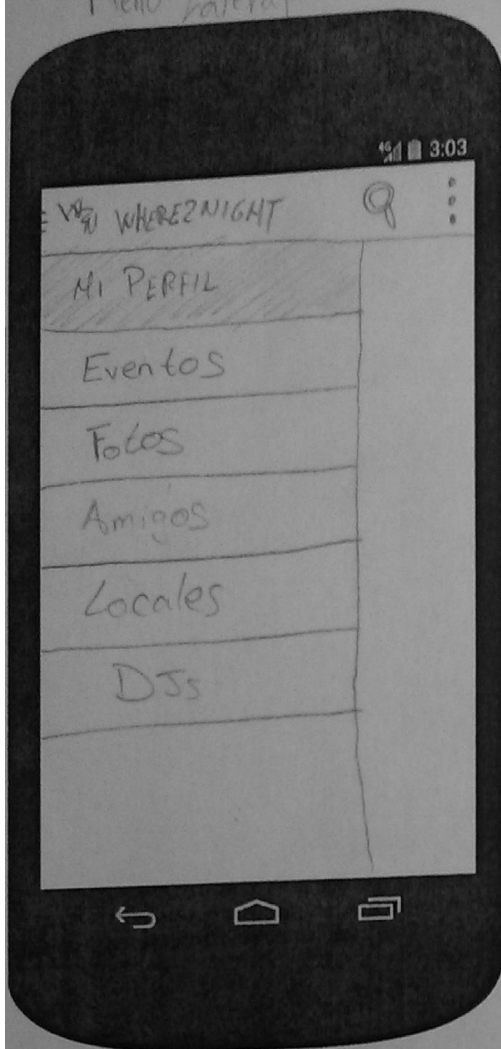 Menú Lateral
4G 3:03
W2N WHERE2NIGHT
MI PERFIL
Eventos
Fotos
Amigos
Locales
DJs